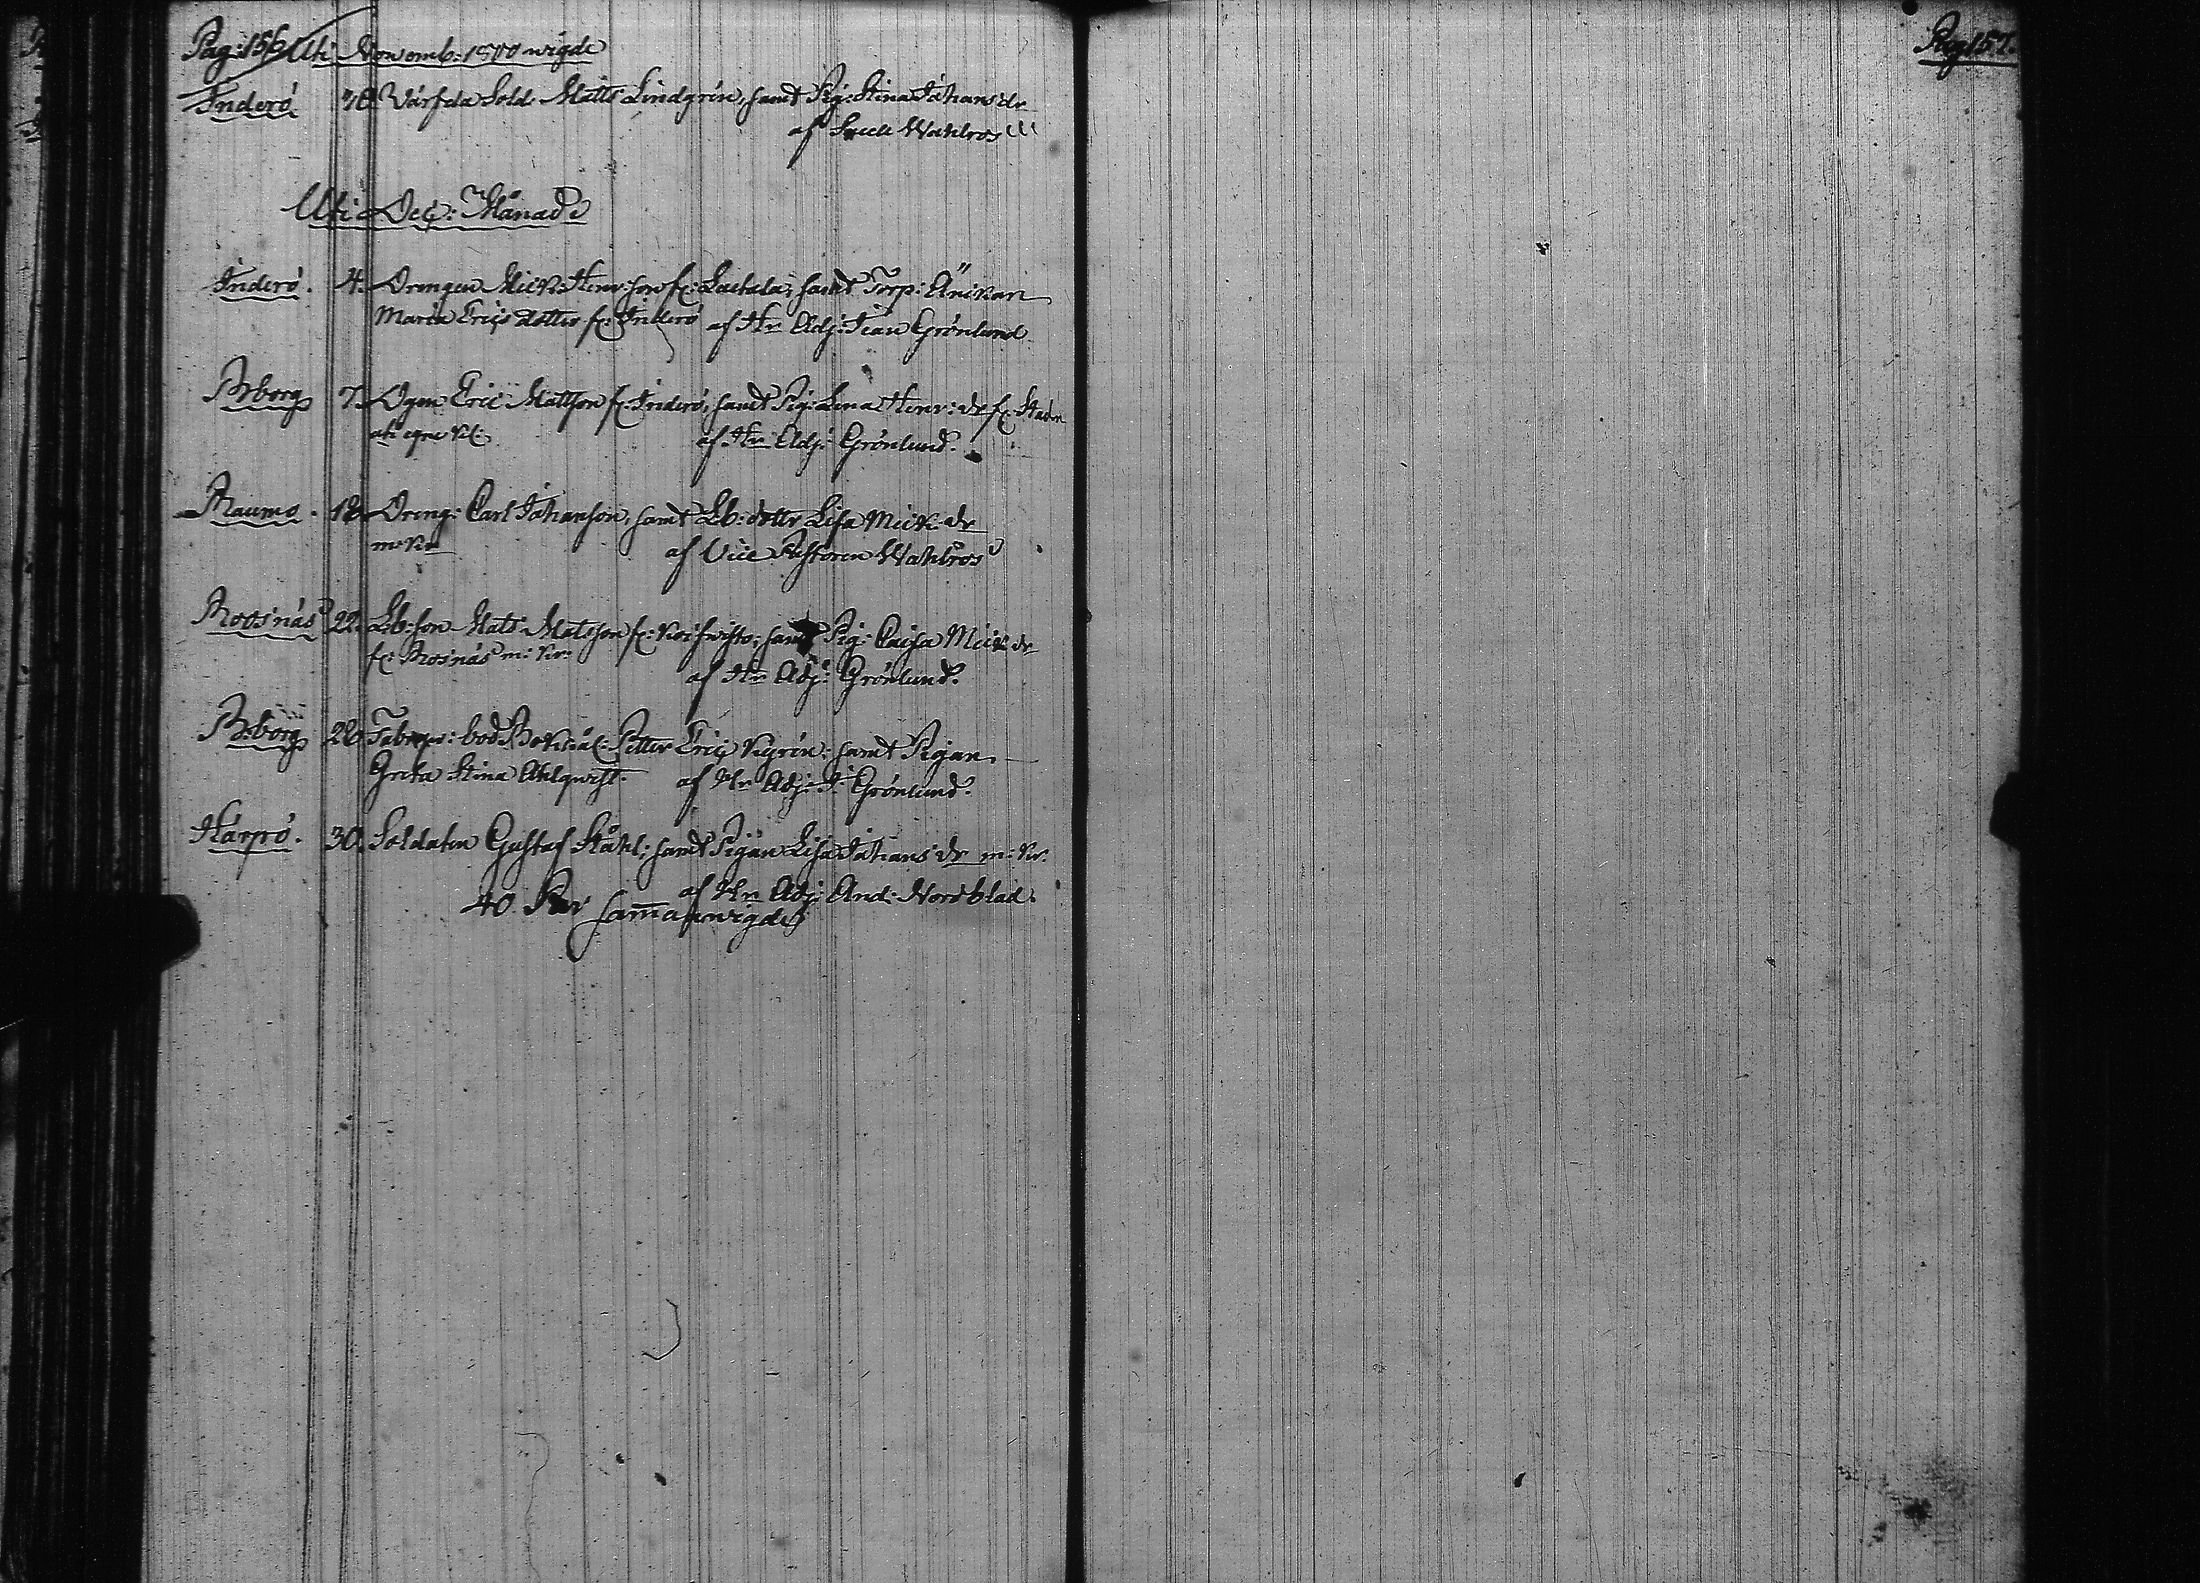 Pag: 156 Uti Novemb: wigde
Inderö 30 Värfda Sold. Matts Lindgrén, samt Pig: Stina Johans dr
af Wahlros
Uti Dec: Månad
Inderö. 4. Drengen Mick: Henr: son fr: samt Torp: Änkan
Maria Erics dotter fr: Inderö af Hr Adj: Grönlund
Arborg 7. Dgen Eric Mattson fr: Inderö, samt Pig: Lena Henr: dr fr:
af Hr Adj: Grönlund.
Raumo. 18 Dreng: Carl Johanson, samt Lb: dottr Lisa Mick dr
af Vice Pastoren Wahlros
Roosnäs 22. Lb: son Mats Matsson fr: samt Pig: Caisa Mick dr
fr: Rosnäs m: kr: af Hr Adj: Grönlund.
Arborg 28 Petter Eric samt Pigan
Greta Stina Ahlqwist. af Hr Adj: J: Grönlund.
Härpö. 30. Soldaten Gustaf Ståhl; samt Pigan Lisa Johans dr m: kr:
af Hr Adj: And: Nordblad.
40 Par sammanwigde
Pag 157.